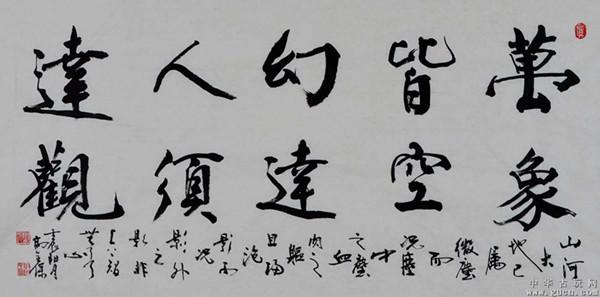 萬象
皆空
幻達
人須
達觀
山河
大地已
屬
微塵
而
況塵
中
之塵
血
肉之
軀
且歸
泡
影而
況
影外之
影非
上上智
無了了
心
中华古玩网
www.gucn.com